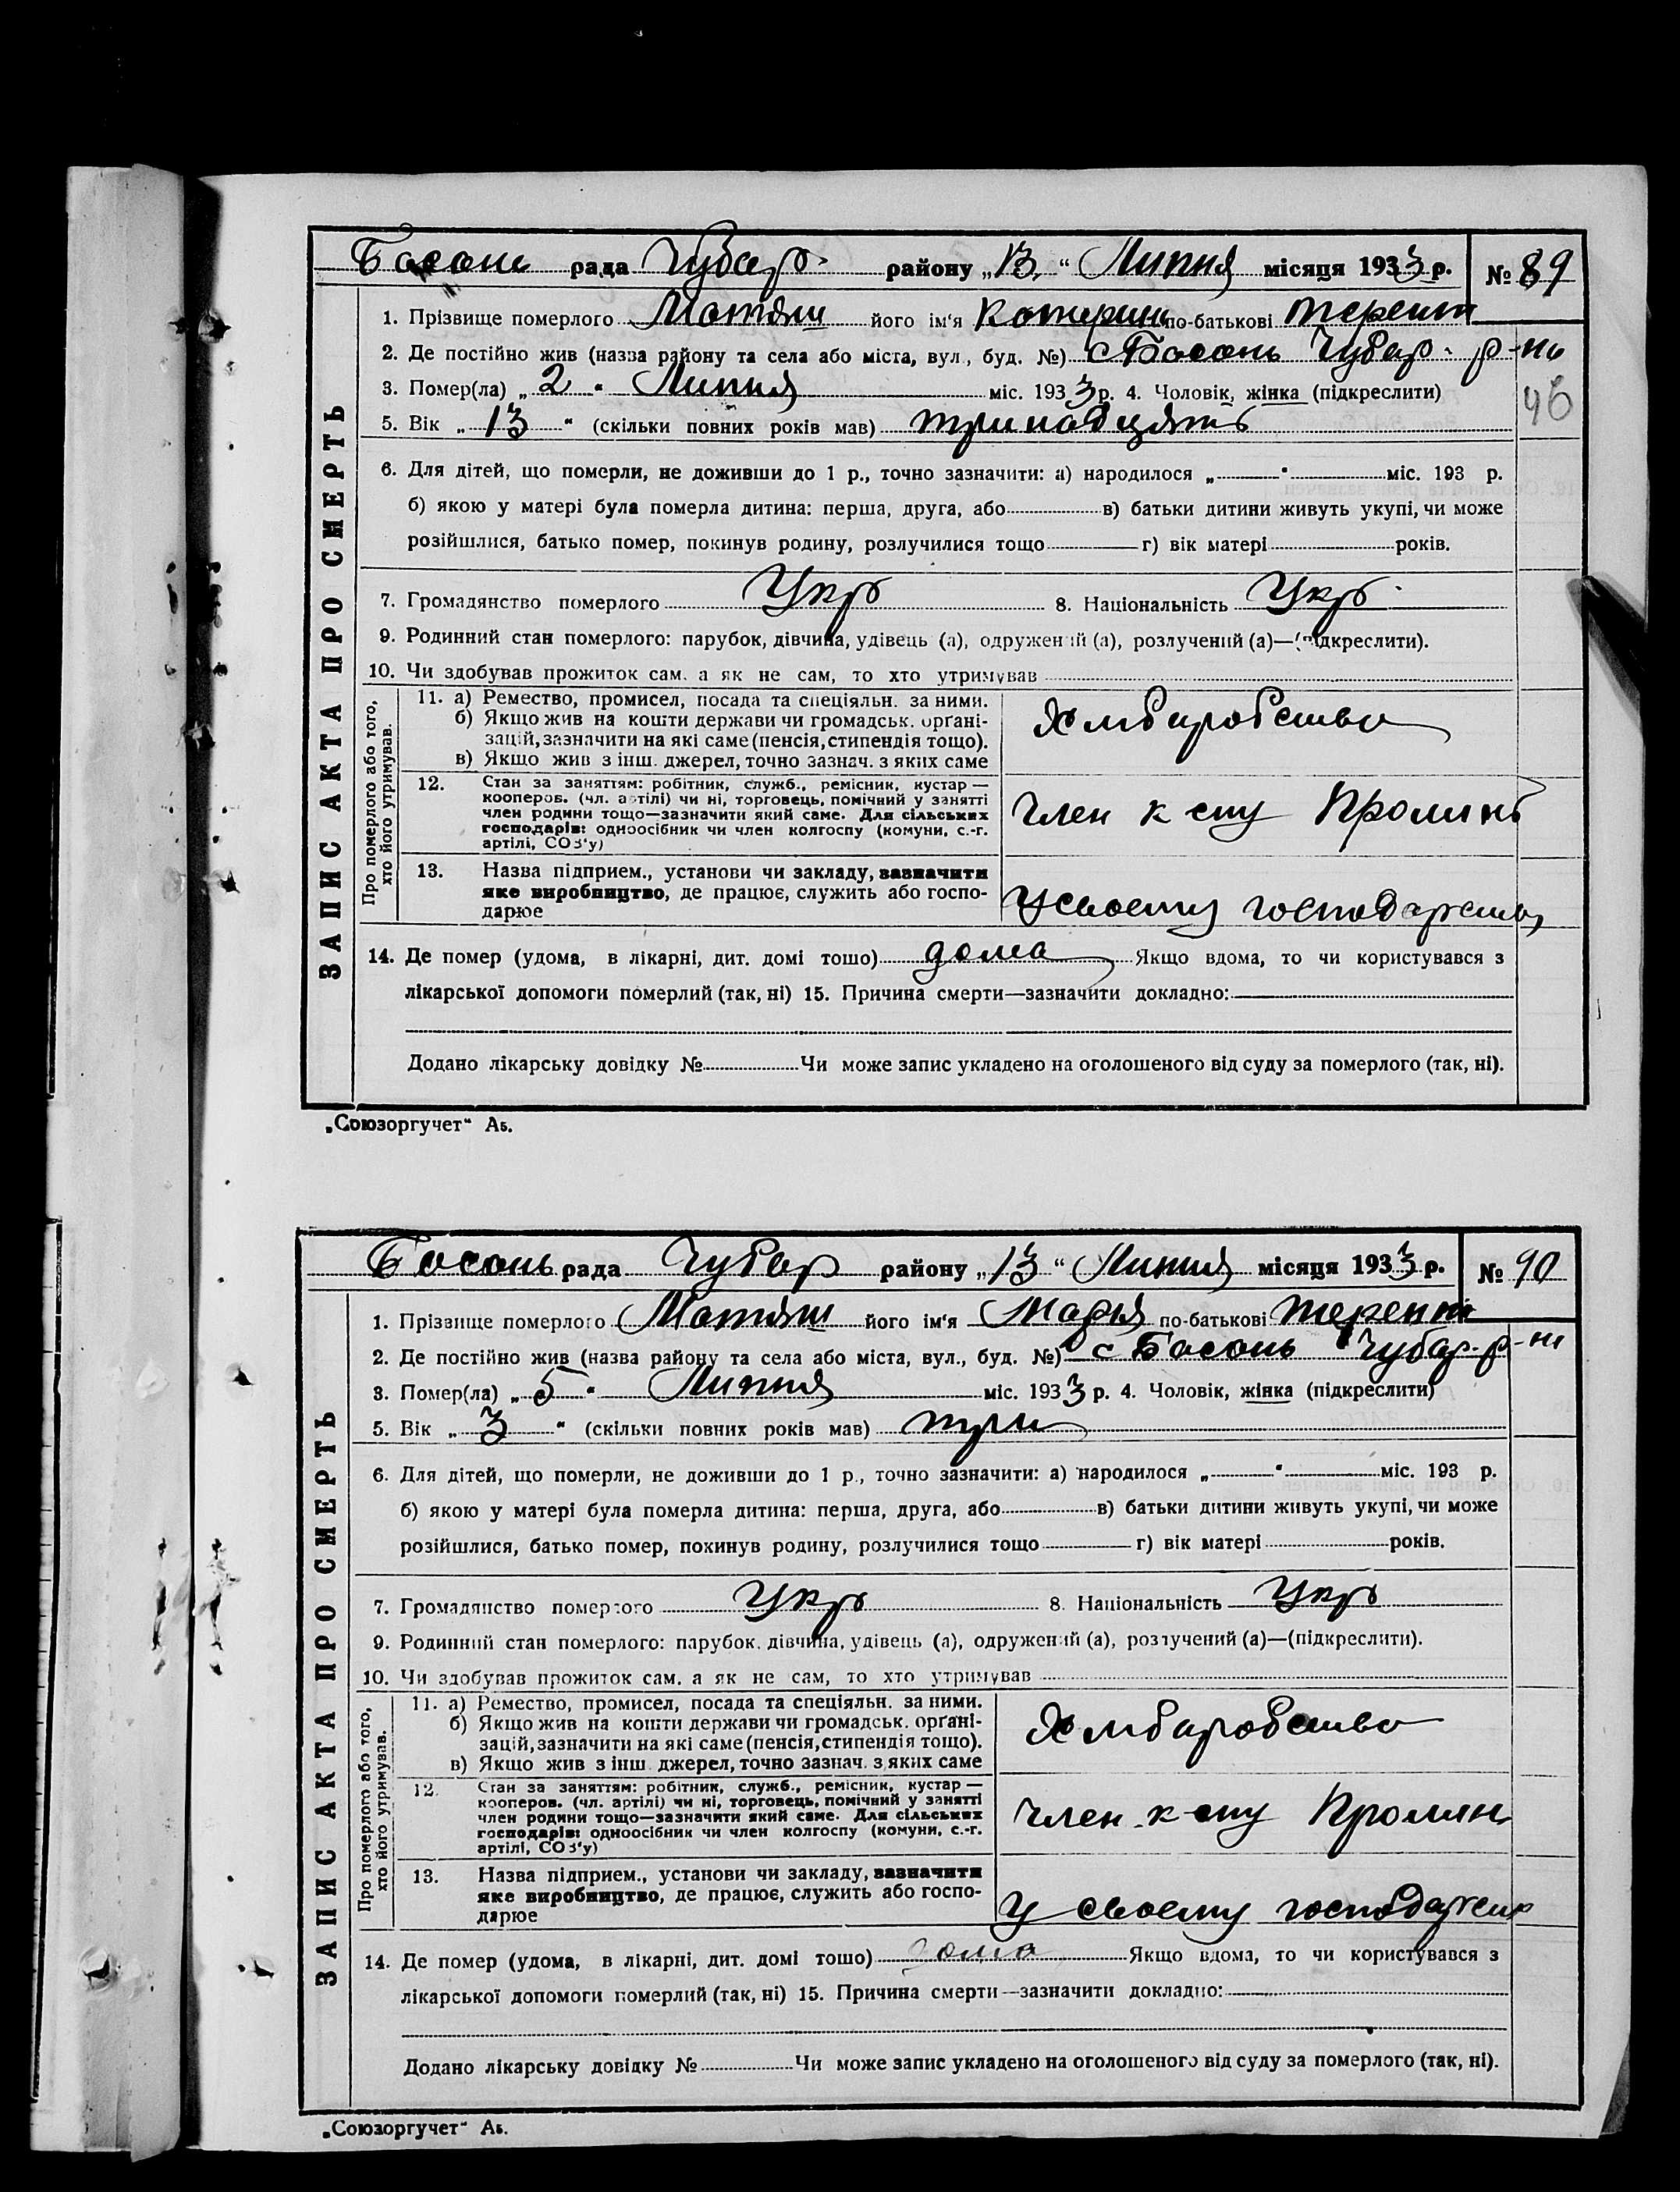 Басань рада Чубар. району „13“ Липня місяця 1933 р. № 89
ЗАПИС АКТА ПРО СМЕРТЬ
1. Прізвище померлого Матяш його ім'я Катерина по-батькові Терент
2. Де постійно жив (назва району та села або міста, вул., буд. №) с Басань Чубар. р-ну
3. Помер(ла) „2“ Липня міс. 1933 р. 4. Чоловік, жінка (підкреслити)
46
5. Вік „13“ (скільки повних років мав) тринадцять
6. Для дітей, що померли, не доживши до 1 р., точно зазначити: а) народилося „ “ міс. 193 р.
б) якою у матері була померла дитина: перша, друга, або в) батьки дитини живуть укупі, чи може
розійшлися, батько помер, покинув родину, розлучилися тощо г) вік матері років.
7. Громадянство померлого Укр 8. Національність Укр.
9. Родинний стан померлого: парубок, дівчина, удівець (а), одружений (а), розлучений (а)—(підкреслити).
10. Чи здобував прожиток сам, а як не сам, то хто утримував
Про померлого або того, хто його утримував.
11. а) Ремество, промисел, посада та спеціяльн. за ними.
б) Якщо жив на кошти держави чи громадськ. орґані-
зацій, зазначити на які саме (пенсія, стипендія тощо).
в) Якщо жив з інш. джерел, точно зазнач. з яких саме
Хліборобство
12. Стан за заняттям: робітник, служб., ремісник, кустар —
кооперов. (чл. артілі) чи ні, торговець, помічний у занятті
член родини тощо—зазначити який саме. Для сільських
господарів: одноосібник чи член колгоспу (комуни, с.-г.
артілі, СОЗ'у)
Член к-спу Проминь
13. Назва підприєм., установи чи закладу, зазначити
яке виробництво, де працює, служить або госпо-
дарює
У своему господарству
14. Де помер (удома, в лікарні, дит. домі тощо) дома Якщо вдома, то чи користувався з
лікарської допомоги померлий (так, ні) 15. Причина смерти—зазначити докладно:
Додано лікарську довідку № Чи може запис укладено на оголошеного від суду за померлого (так, ні).
„Союзоргучет“ Аб.
Басань рада Чубар району „13“ Липня місяця 1933 р. № 90
ЗАПИС АКТА ПРО СМЕРТЬ
1. Прізвище померлого Матяш його ім'я Марія по-батькові Терент
2. Де постійно жив (назва району та села або міста, вул., буд. №) с Басань Чубар. р-ну
3. Помер(ла) „5“ Липня міс. 1933 р. 4. Чоловік, жінка (підкреслити)
5. Вік „3“ (скільки повних років мав) три
6. Для дітей, що померли, не доживши до 1 р., точно зазначити: а) народилося „ “ міс. 193 р.
б) якою у матері була померла дитина: перша, друга, або в) батьки дитини живуть укупі, чи може
розійшлися, батько помер, покинув родину, розлучилися тощо г) вік матері років.
7. Громадянство померлого Укр 8. Національність Укр
9. Родинний стан померлого: парубок, дівчина, удівець (а), одружений (а), розлучений (а)—(підкреслити).
10. Чи здобував прожиток сам, а як не сам, то хто утримував
Про померлого або того, хто його утримував.
11. а) Ремество, промисел, посада та спеціяльн. за ними.
б) Якщо жив на кошти держави чи громадськ. орґані-
зацій, зазначити на які саме (пенсія, стипендія тощо).
в) Якщо жив з інш. джерел, точно зазнач. з яких саме
Хліборобство
12. Стан за заняттям: робітник, служб., ремісник, кустар —
кооперов. (чл. артілі) чи ні, торговець, помічний у занятті
член родини тощо—зазначити який саме. Для сільських
господарів: одноосібник чи член колгоспу (комуни, с.-г.
артілі, СОЗ'у)
Член к-спу Проминь
13. Назва підприєм., установи чи закладу, зазначити
яке виробництво, де працює, служить або госпо-
дарює
У своему господарству
14. Де помер (удома, в лікарні, дит. домі тощо) дома Якщо вдома, то чи користувався з
лікарської допомоги померлий (так, ні) 15. Причина смерти—зазначити докладно:
Додано лікарську довідку № Чи може запис укладено на оголошеного від суду за померлого (так, ні).
„Союзоргучет“ Аб.